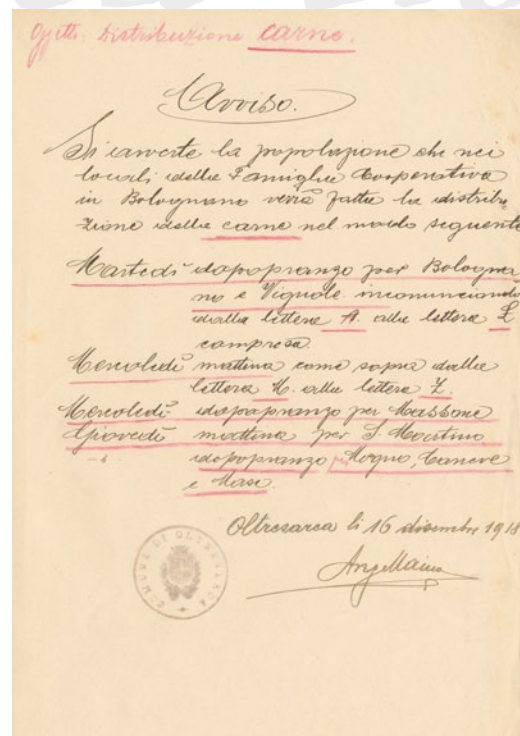 Ogetto: Distribuzione carne.
Avviso.
Si avverte la popolazione che nei
locali della Famiglia Cooperativa
in Bolognano verrà fatta la distribu
zione della carne nel modo seguente
Martedì dopopranzo per Bologna
no e Vignole incominciando
dalla lettera A. alla lettera L
compresa.
Mercoledì mattina come sopra dalla
lettera M. alla lettera Z.
Mercoledì dopopranzo per Massone
Giovedì mattina per S. Martino
dopopranzo per Mogno, Caneve
e Masi.
Oltresarca li 16 dicembre 1918
COMUNE DI OLTRESARCA